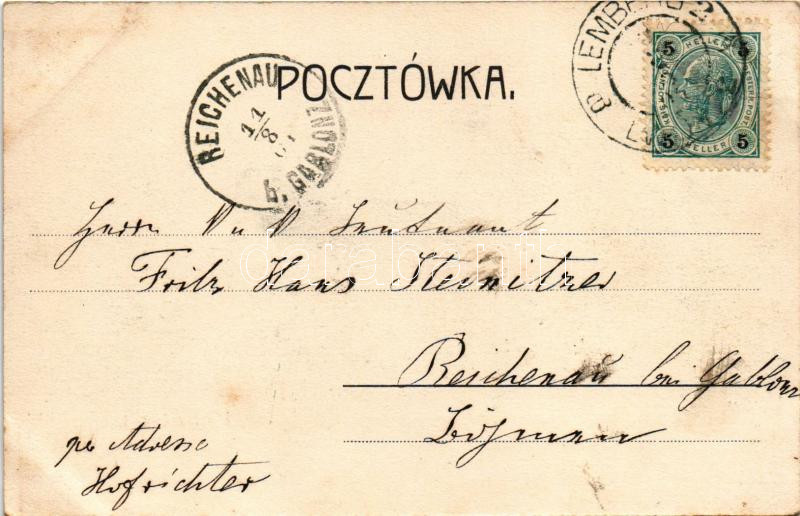 POCZTÓWKA.
REICHENAU
11/8
b. GABLONZ
LEMBERG 2
5 HELLER 5
5 HELLER 5
Herrn K u K Leutnant
Fritz Hans Steinitzer
Reichenau bei Gablonz
Böhmen
per Adresse
Hofrichter
darabanth